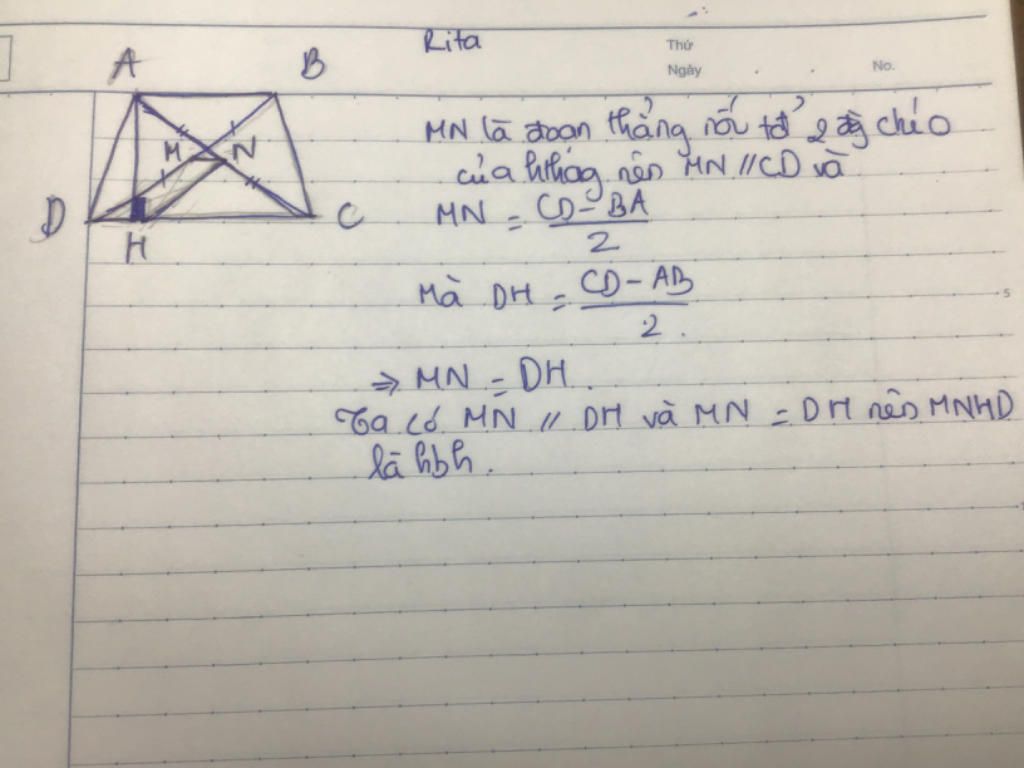 Rita
Thứ
Ngày
No.
A B
M N
D C
H
MN là đoạn thẳng nối tđ 2 đg chéo
của hthag nên MN // CD và
MN = CD - BA / 2
Mà DH = CD - AB / 2.
5
⇒ MN = DH.
Ta có MN // DH và MN = DH nên MNHD
là hbh.